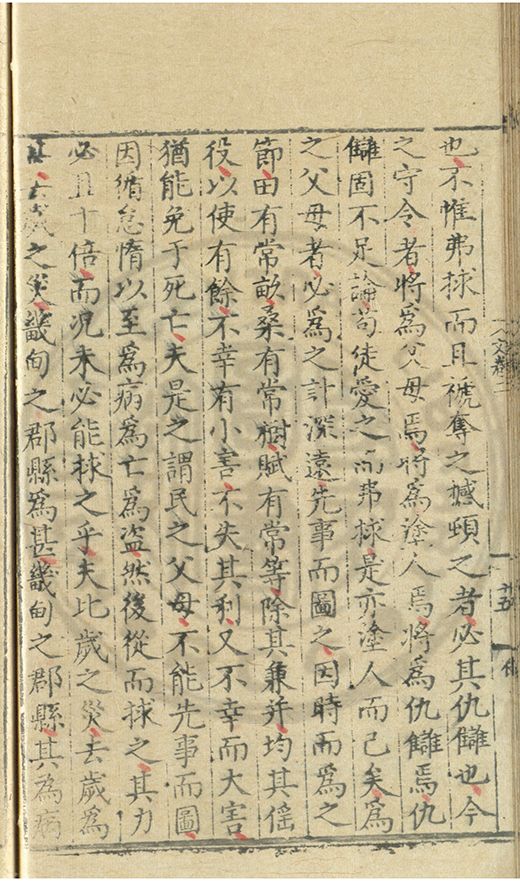 也不惟弗捄而且褫奪之撼頓之者必其仇讎也今
之守令者將為父母焉將為塗人焉將為仇讎焉仇
讎固不足論苟徒愛之而弗捄是亦塗人而已矣為
之父母者必為之計深遠先事而圖之因時而為之
節田有常畝桑有常樹賦有常等除其兼并均其徭
役以使有餘不幸有小害不失其利又不幸而大害
猶能免于死亡夫是之謂民之父母不能先事而圖
因循怠惰以至為病為亡為盜然後從而捄之其力
必且十倍而况未必能捄之乎夫比歲之災去歲為
甚去歲之災畿甸之郡縣為甚畿甸之郡縣其為病
文卷二
廿五